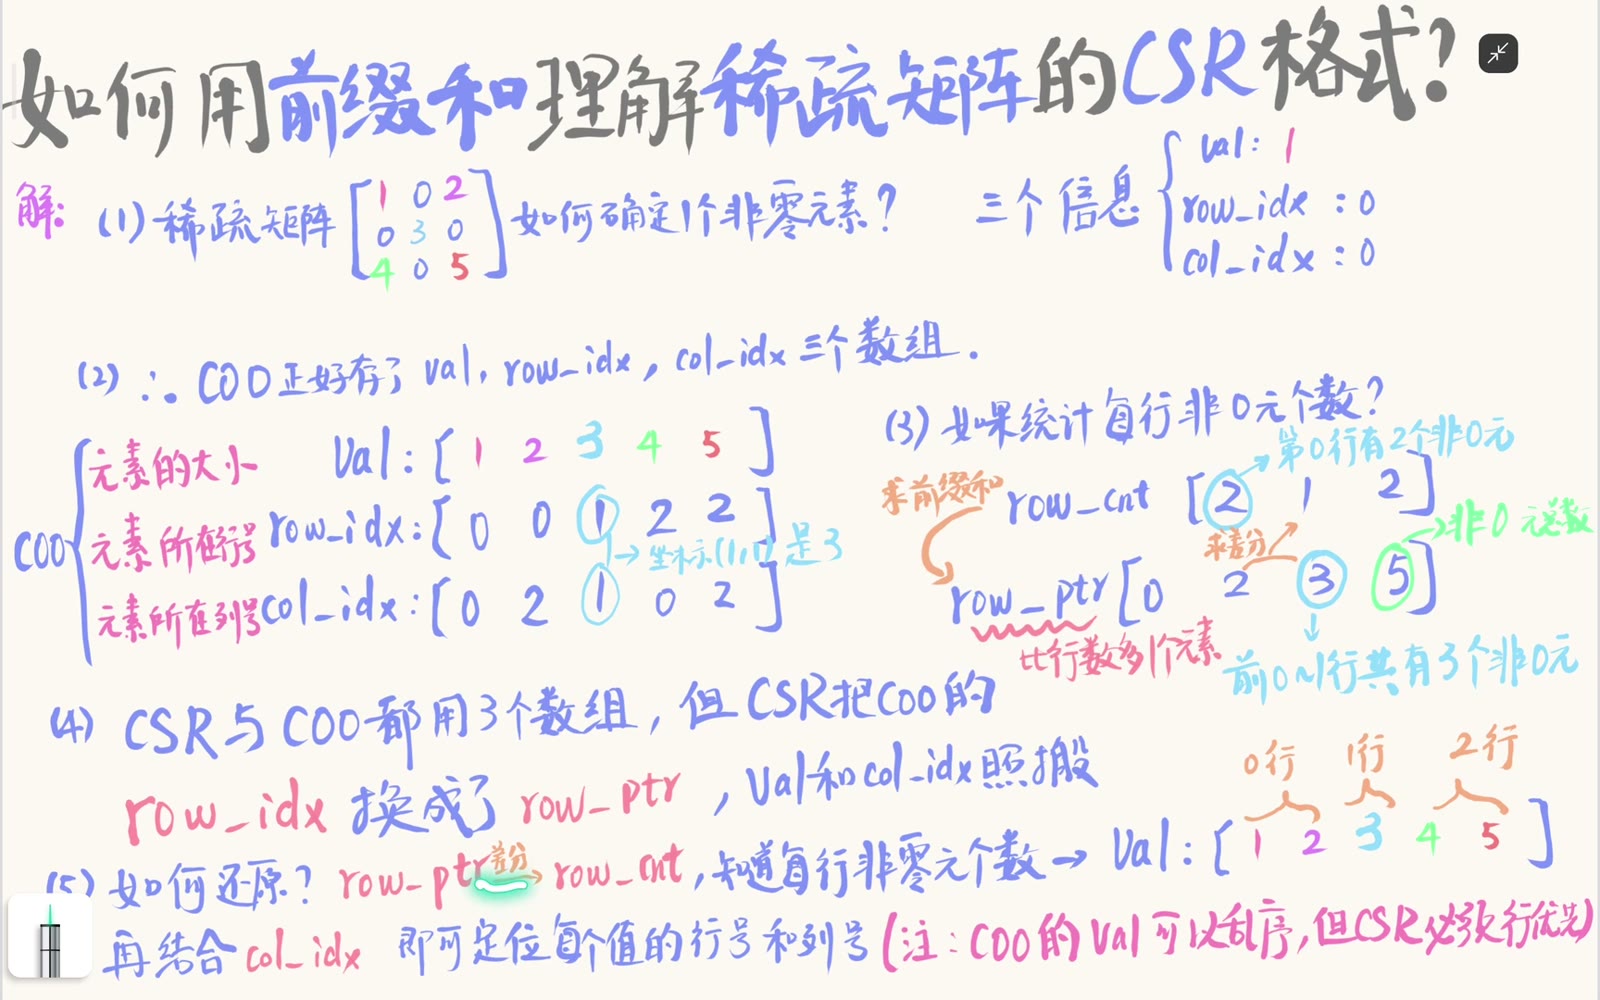 如何用前缀和理解稀疏矩阵的CSR格式?
解: (1) 稀疏矩阵 [1 0 2
0 3 0
4 0 5] 如何确定1个非零元素? 三个信息 { val: 1
row_idx : 0
col_idx : 0
(2) ∴ COO正好存了 val, row_idx, col_idx 三个数组.
COO { 元素的大小 Val: [ 1 2 3 4 5 ]
元素所在行号 row_idx: [ 0 0 1 2 2 ]
→ 坐标(1,1)是3
元素所在列号 col_idx: [ 0 2 1 0 2 ]
(3) 如果统计每行非0元个数?
→ 第0行有2个非0元
求前缀和 row_cnt [ 2 1 2 ]
求差分 → 非0元总数
row_ptr [ 0 2 3 5 ]
比行数多1个元素
前0~1行共有3个非0元
(4) CSR与COO都用3个数组, 但CSR把COO的
row_idx 换成了 row_ptr , Val和col_idx照搬
(5) 如何还原? row_ptr 差分→ row_cnt, 知道每行非零元个数 → Val: [ 1 2 3 4 5 ]
0行 1行 2行
再结合 col_idx 即可定位每个值的行号和列号 (注: COO的Val可以乱序, 但CSR必须行优先)